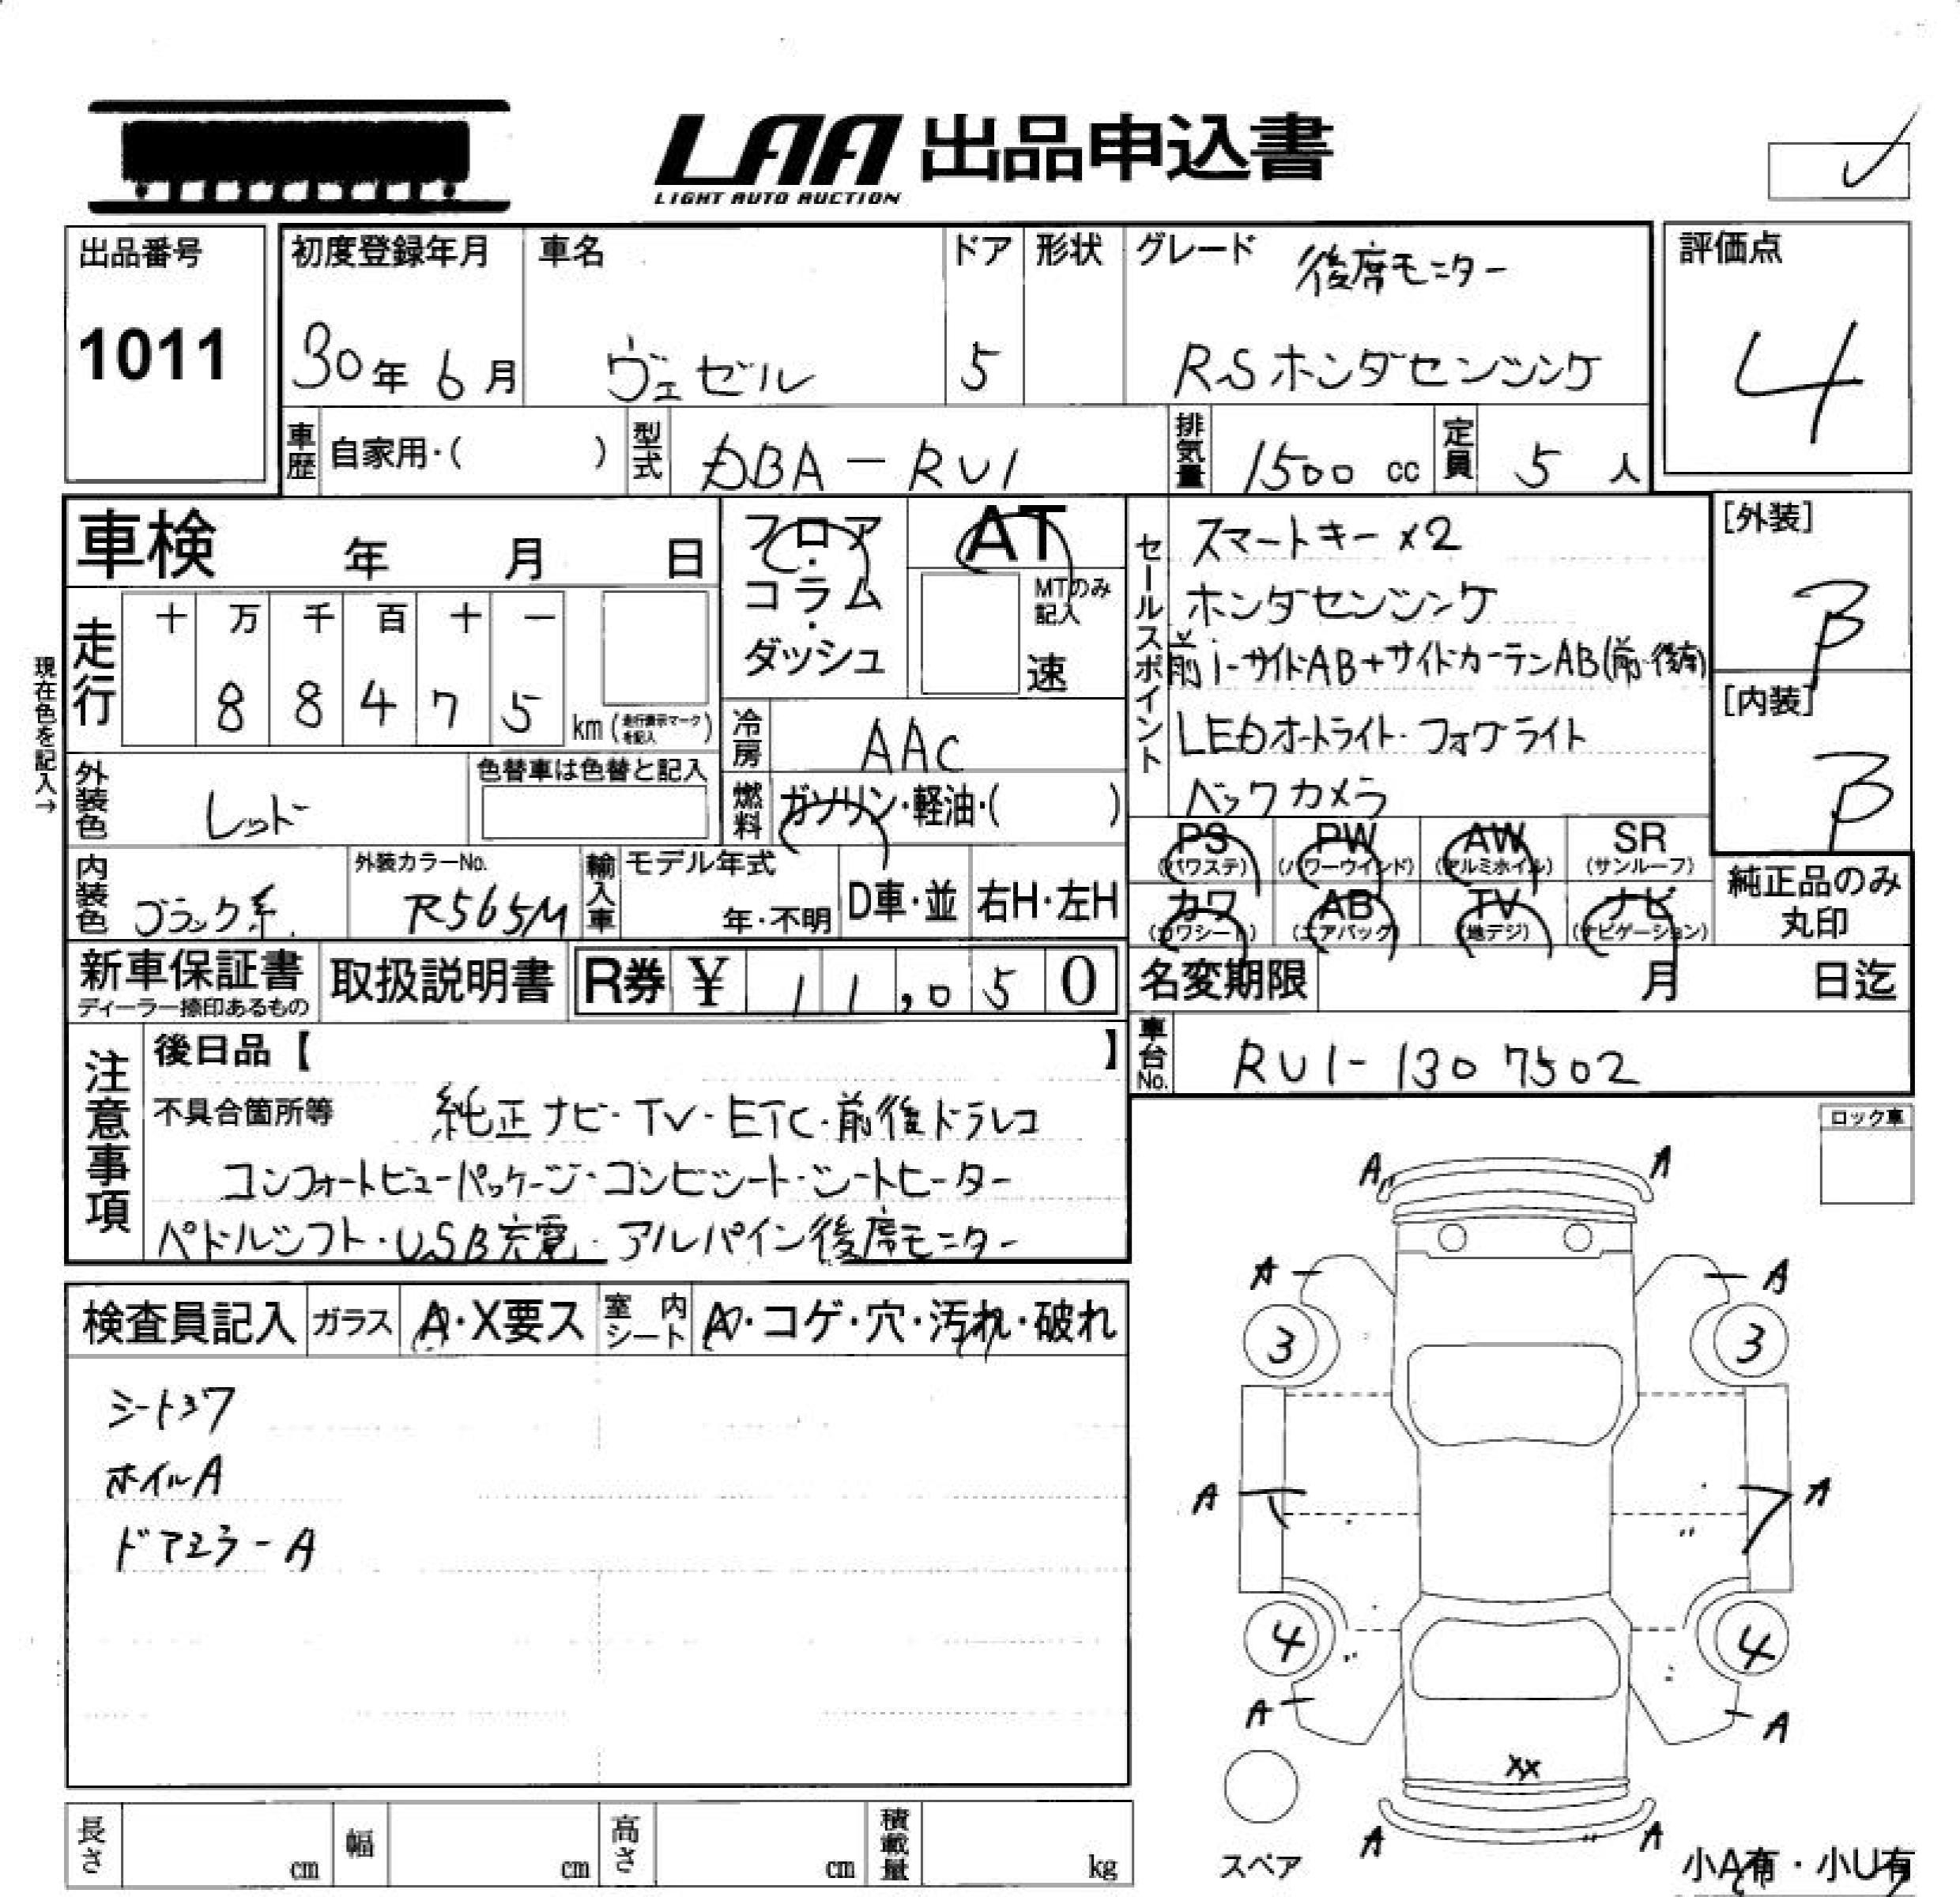 LAA 出品申込書
LIGHT AUTO AUCTION
出品番号
1011
初度登録年月
30年 6月
車名
ヴェゼル
ドア
5
形状
グレード
後席モニター
RSホンダセンシング
評価点
4
車歴 自家用・( )
型式 DBA-RU1
排気量 1500 cc
定員 5 人
車検 年 月 日
フロア・コラム・ダッシュ
AT
MTのみ記入
速
走行
十 万 千 百 十 一
8 8 4 7 5
km (走行表示マークを記入)
現在色を記入→
冷房 AAC
燃料 ガソリン・軽油・( )
外装色 レッド
色替車は色替と記入
内装色 ブラック系
外装カラーNo.
R565M
輸入車 モデル年式
年・不明
D車・並
右H・左H
セールスポイント
スマートキー×2
ホンダセンシング
前i-サイドAB+サイドカーテンAB(前・後席)
LEDオートライト・フォグライト
バックカメラ
[外装]
B
[内装]
B
PS (パワステ)
PW (パワーウインド)
AW (アルミホイル)
SR (サンルーフ)
カワ (カワシート)
AB (エアバック)
TV (地デジ)
ナビ (ナビゲーション)
純正品のみ
丸印
新車保証書
ディーラー捺印あるもの
取扱説明書
R券 ¥ 11,050
名変期限 月 日迄
車台No. RU1-1307502
注意事項
後日品【 】
不具合箇所等
純正ナビ・TV・ETC・前後ドラレコ
コンフォートビューパッケージ・コンビシート・シートヒーター
パドルシフト・USB充電・アルパイン後席モニター
ロック車
検査員記入
ガラス A・X要ス
室内シート A・コゲ・穴・汚れ・破れ
シートスワ
ホイルA
ドアミラーA
A A
A A
3 3
A A
4 4
A A
XX
A A
スペア
小A有・小U有
長さ cm
幅 cm
高さ cm
積載量 kg